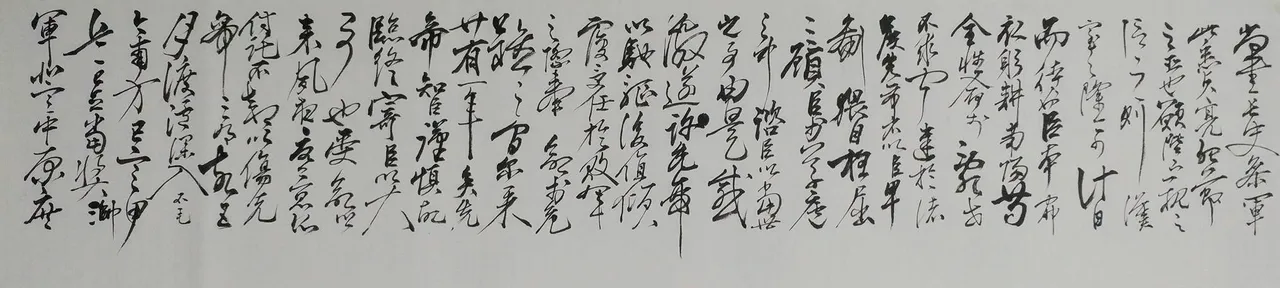 尚書長史參軍
此悉貞亮死節
之臣也願陛下親之
信之則漢
室之隆可計日
而待也臣本布
衣躬耕南陽苟
全性命於亂世
不求聞達於諸
侯先帝不以臣卑
鄙猥自枉屈
三顧臣於草廬
之中諮臣以當世
之事由是感
激遂許先帝
以馳驅後值傾
覆受任於敗軍
之際奉命於危
難之間爾來
廿有一年矣先
帝知臣謹慎故
臨終寄臣以大
事也受命以
來夙夜憂慮恐
付託不效以傷先
帝之明故五
月渡瀘深入不毛
今南方已定甲
兵已足當獎帥
軍北定中原庶